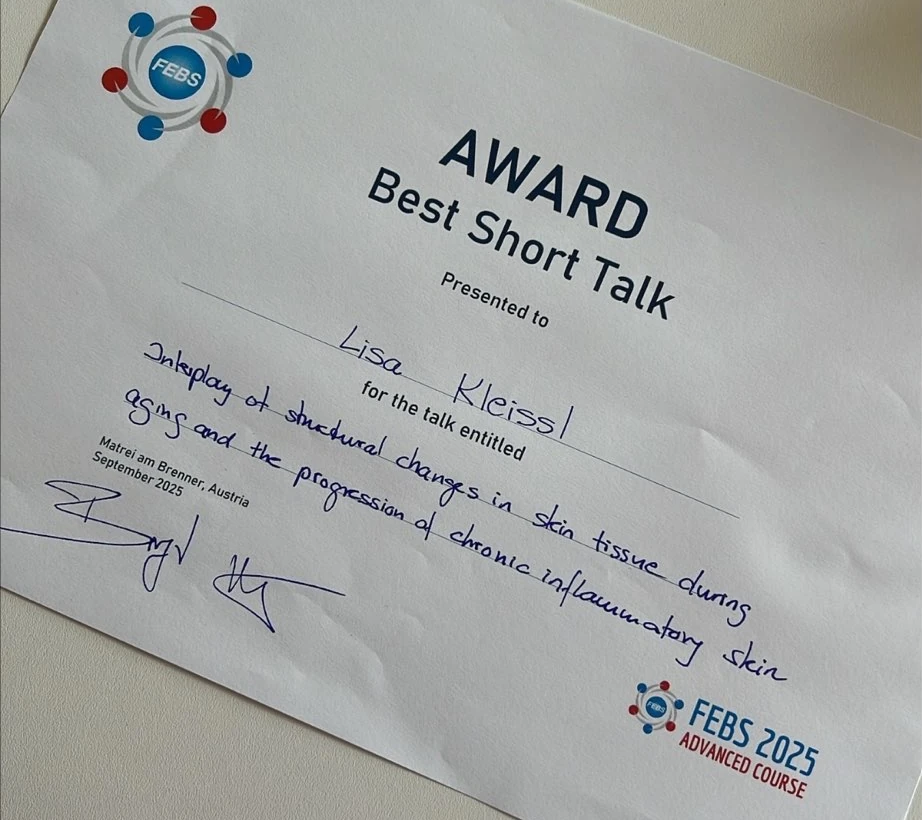 FEBS
AWARD
Best Short Talk
Presented to
Lisa Kleissl
for the talk entitled
Interplay of structural changes in skin tissue during
aging and the progression of chronic inflammatory skin
Matrei am Brenner, Austria
September 2025
FEBS
FEBS 2025
ADVANCED COURSE